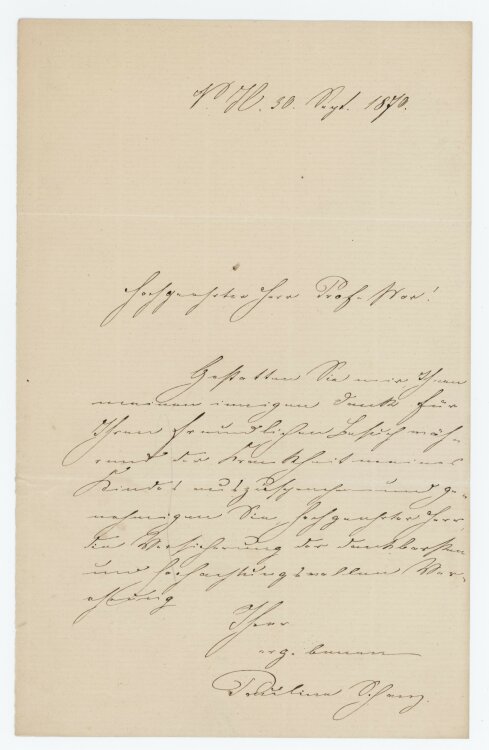 V. H. 30. Sept. 1870.
Hochgeehrter Herr Professor!
Gestatten Sie mir Ihnen
meinen innigen Dank für
Ihren freundlichen Besuch wäh-
rend der Krankheit meines
Kindes auszusprechen und ge-
nehmigen Sie, hochgeehrter Herr,
die Versicherung der dankbarsten
und hochachtungsvollen Ver-
ehrung
Ihrer
ergebenen
Pauline